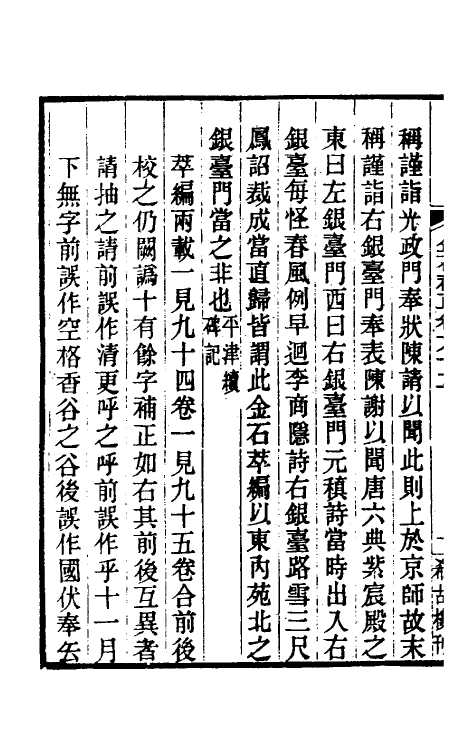 稱謹詣光政門奉狀陳請以聞此則上於京師故末
稱謹詣右銀臺門奉表陳謝以聞唐六典紫宸殿之
東曰左銀臺門西曰右銀臺門元稹詩當時出入右
銀臺每怪春風例早迴李商隱詩右銀臺路雪三尺
鳳詔裁成當直歸皆謂此金石萃編以東內苑北之
銀臺門當之非也平津續碑記
萃編兩載一見九十四卷一見九十五卷合前後
校之仍闕譌十有餘字補正如右其前後互異者
請抽之請前誤作清更呼之呼前誤作乎十一月
下無字前誤作空格香谷之谷後誤作國伏奉矣